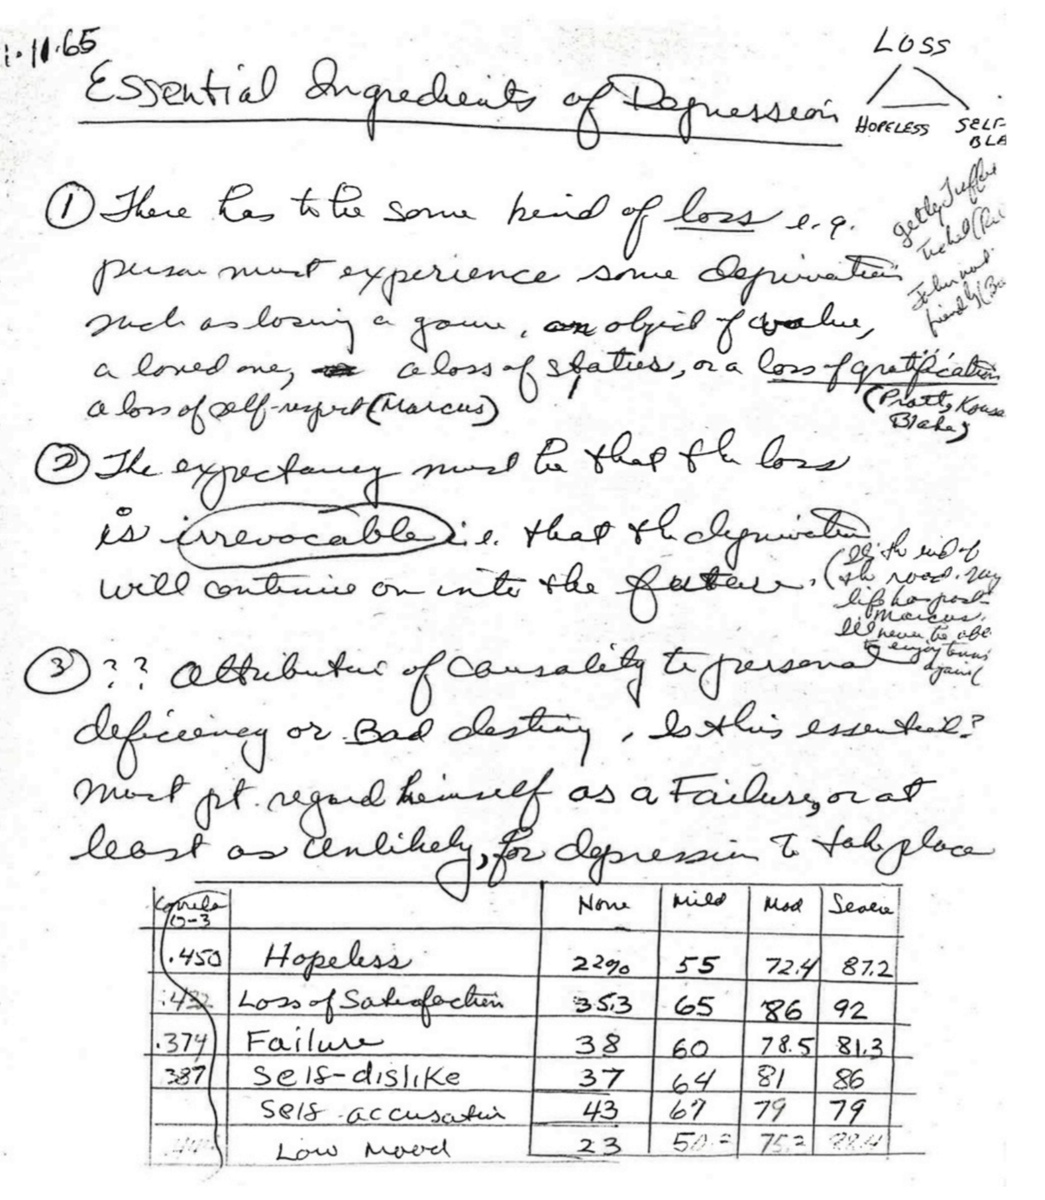 11.65
Essential Ingredients of Depression
LOSS
HOPELESS SELF-
BLA
① There has to be some kind of loss e.g.
person must experience some deprivation
such as losing a game, an object of value,
a loved one, a loss of status, or a loss of gratification
a loss of self-respect (Marcus)
(Pratt, Kouse
Blake)
② The expectancy must be that the loss
is irrevocable i.e. that the deprivation
will continue on into the future.
(It's the end of
the road. my
life has past -
Marcus.
I'll never be able
to enjoy tennis
again(
③ ?? Attribution of causality to personal
deficiency or Bad destiny, Is this essential?
Must pt. regard himself as a Failure, or at
least as unlikely, for depression to take place
None Mild Mod Severe
.450 Hopeless 22% 55 72.4 87.2
Loss of Satisfaction 35.3 65 86 92
.374 Failure 38 60 78.5 81.3
387 Self-dislike 37 64 81 86
Self-accusation 43 67 79 79
Low Mood 23 75.2